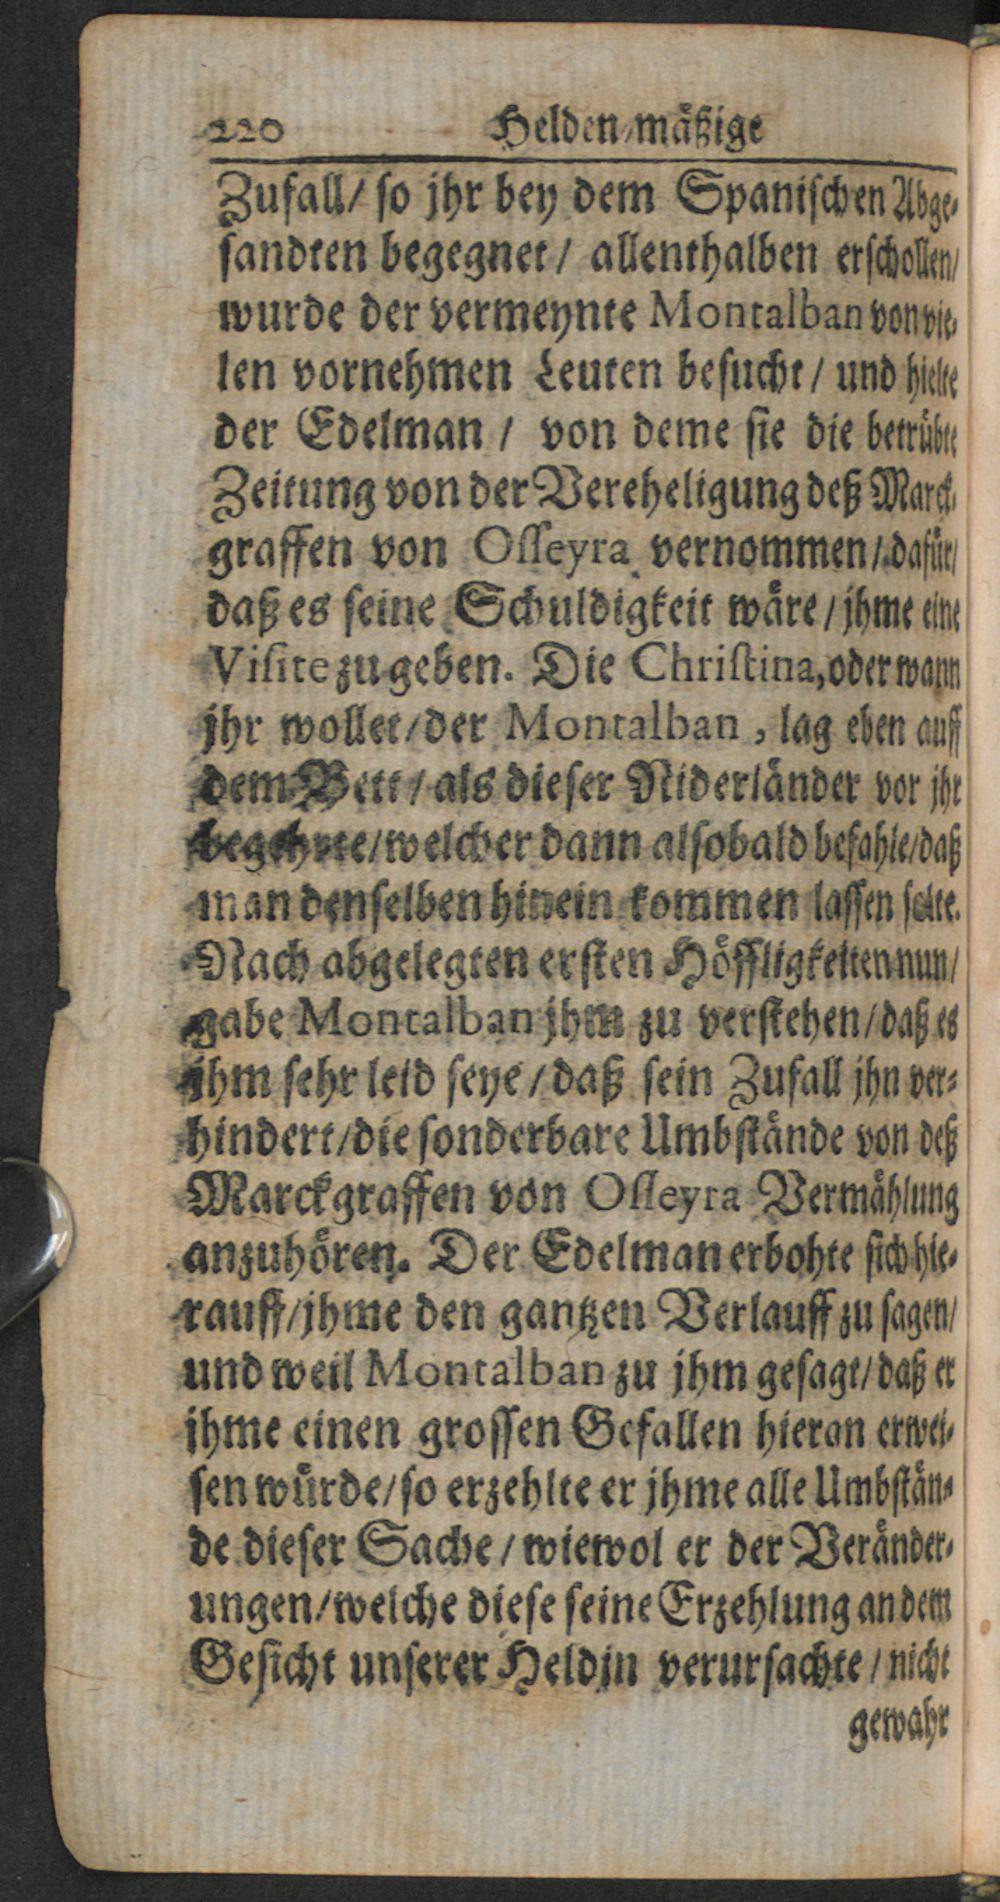 220 Helden-mäßige
Zufall/ so jhr bey dem Spanischen Abge-
sandten begegnet / allenthalben erschollen/
wurde der vermeynte Montalban von vie-
len vornehmen Leuten besucht / und hielte
der Edelman / von deme sie die betrübte
Zeitung von der Vereheligung deß Marck-
graffen von Osseyra vernommen / dafür/
daß es seine Schuldigkeit wäre / jhme eine
Visite zu geben. Die Christina, oder wann
jhr wollet/der Montalban, lag eben auff
dem Bett / als dieser Niderländer vor jhr
begehrte/welcher dann alsobald befahle/daß
man denselben hinein kommen lassen solte.
Nach abgelegten ersten Höffligkeiten nun/
gabe Montalban jhm zu verstehen/daß es
jhm sehr leid seye / daß sein Zufall jhn ver-
hindert/die sonderbare Umbstände von deß
Marckgraffen von Osseyra Vermählung
anzuhören. Der Edelman erbohte sich hie-
rauff/jhme den gantzen Verlauff zu sagen/
und weil Montalban zu jhm gesagt/daß er
jhme einen grossen Gefallen hieran erwei-
sen würde/so erzehlte er jhme alle Umbstän-
de dieser Sache / wiewol er der Veränder-
ungen/welche diese seine Erzehlung an dem
Gesicht unserer Heldin verursachte / nicht
gewahr